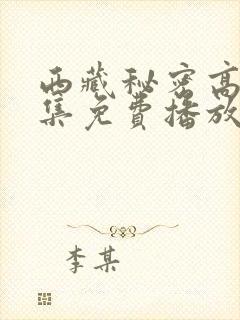 西藏秘密高
集免费播放
李某